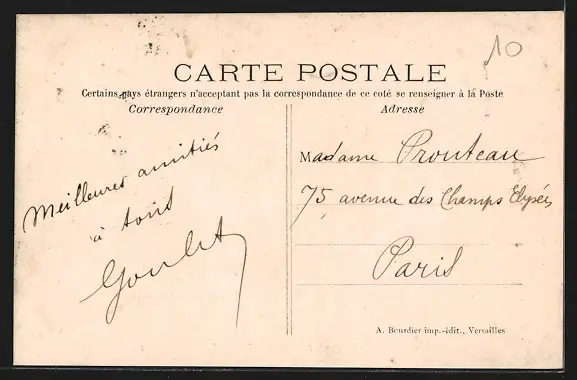 10
CARTE POSTALE
Certains pays étrangers n'acceptant pas la correspondance de ce coté se renseigner à la Poste
Correspondance
Meilleures amitiés
à tous
Goulet
Adresse
Madame Prouteau
75, avenue des Champs Elysées
Paris
A. Bourdier imp.-édit., Versailles